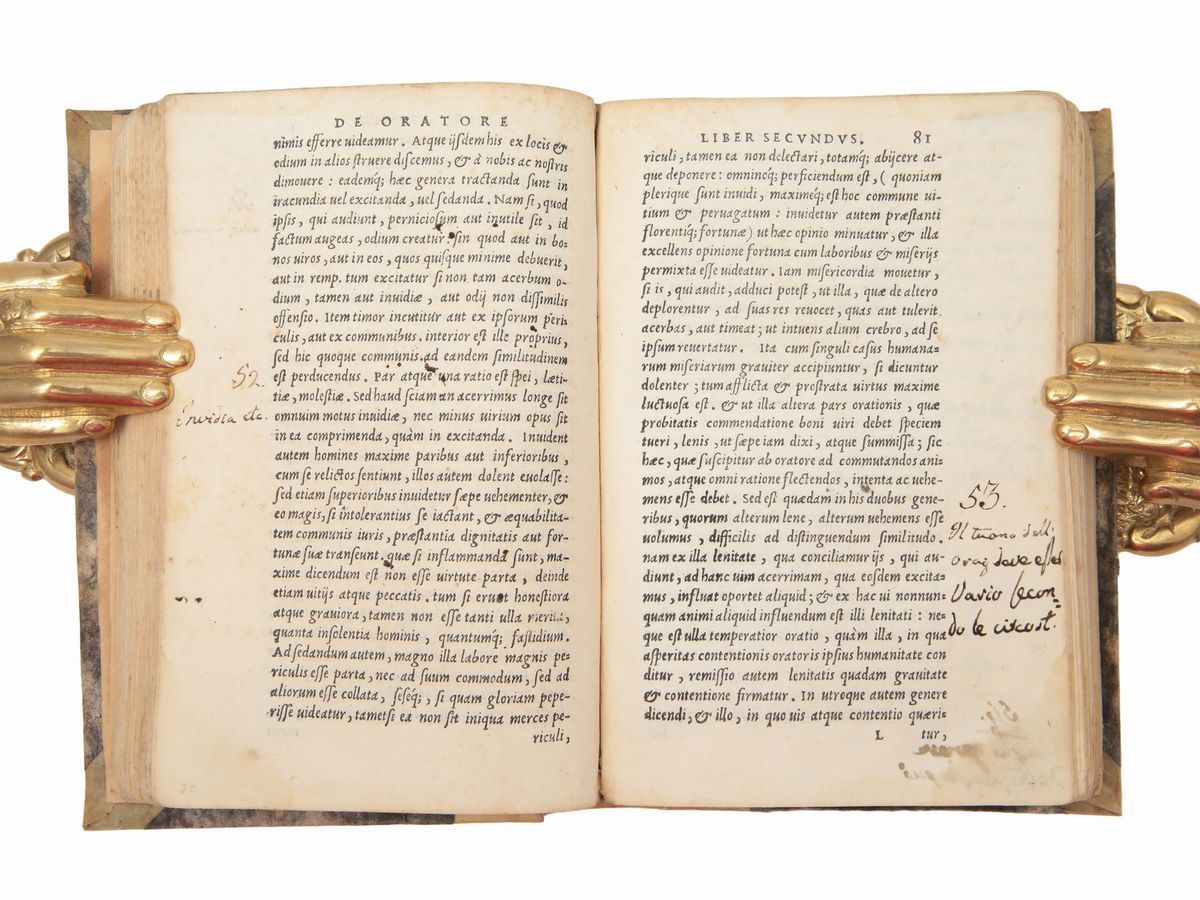 DE ORATORE
nimis efferre uideamur. Atque ijsdem his ex locis &
odium in alios struere discemus, & à nobis ac nostris
dimouere: eademq́; hæc genera tractanda sunt in
iracundia uel excitanda, uel sedanda. Nam si, quod
ipsis, qui audiunt, perniciosum aut inutile sit, id
factum augeas, odium creatur: sin quod aut in bo=
nos uiros, aut in eos, quos quisque minime debuerit,
aut in remp. tum excitatur si non tam acerbum o-
dium, tamen aut inuidiæ, aut odij non dissimilis
offensio. Item timor incutitur aut ex ipsorum peri-
culis, aut ex communibus. interior est ille proprius,
sed hic quoque communis ad eandem similitudinem
est perducendus. Par atque una ratio est spei, læti-
tiæ, molestiæ. Sed haud sciam an acerrimus longe sit
omnium motus inuidiæ, nec minus uirium opus sit
in ea comprimenda, quàm in excitanda. Inuident
autem homines maxime paribus aut inferioribus,
cum se relictos sentiunt, illos autem dolent euolasse:
sed etiam superioribus inuidetur sæpe uehementer, &
eo magis, si intolerantius se iactant, & æquabilita-
tem communis iuris, præstantia dignitatis aut for-
tunæ suæ transeunt. quæ si inflammanda sunt, ma-
xime dicendum est non esse uirtute parta, deinde
etiam uitijs atque peccatis. tum si erunt honestiora
atque grauiora, tamen non esse tanti ulla merita,
quanta insolentia hominis, quantumq́; fastidium.
Ad sedandum autem, magno illa labore magnis pe=
riculis esse parta, nec ad suum commodum, sed ad
aliorum esse collata, seseq́;, si quam gloriam pepe-
risse uideatur, tametsi ea non sit iniqua merces pe-
riculi,
52.
Invidia etc.
LIBER SECVNDVS. 81
riculi, tamen ea non delectari, totamq́; abijcere at-
que deponere: omninoq́; perficiendum est, ( quoniam
plerique sunt inuidi, maximeq́; est hoc commune ui-
tium & peruagatum: inuidetur autem præstanti
florentiq́; fortunæ) ut hæc opinio minuatur, & illa
excellens opinione fortuna cum laboribus & miserijs
permixta esse uideatur. Iam misericordia mouetur,
si is, qui audit, adduci potest, ut illa, quæ de altero
deplorentur, ad suas res reuocet, quas aut tulerit
acerbas, aut timeat; ut intuens alium crebro, ad se
ipsum reuertatur. Ita cum singuli casus humana-
rum miseriarum grauiter accipiuntur, si dicuntur
dolenter; tum afflicta & prostrata uirtus maxime
luctuosa est. & ut illa altera pars orationis, quæ
probitatis commendatione boni uiri debet speciem
tueri, lenis, ut sæpe iam dixi, atque summissa; sic
hæc, quæ suscipitur ab oratore ad commutandos ani=
mos, atque omni ratione flectendos, intenta ac uehe-
mens esse debet. Sed est quædam in his duobus gene-
ribus, quorum alterum lene, alterum uehemens esse
uolumus, difficilis ad distinguendum similitudo.
nam ex illa lenitate, qua conciliamur ijs, qui au-
diunt, ad hanc uim acerrimam, qua eosdem excita=
mus, influat oportet aliquid; & ex hac ui nonnun=
quam animi aliquid influendum est illi lenitati: ne=
que est ulla temperatior oratio, quàm illa, in qua
asperitas contentionis oratoris ipsius humanitate con
ditur, remissio autem lenitatis quadam grauitate
& contentione firmatur. In utroque autem genere
dicendi, & illo, in quo uis atque contentio quæri=
L tur,
53.
Il tuono dell'
oraz. deve esser
Vario secon=
do le circost.